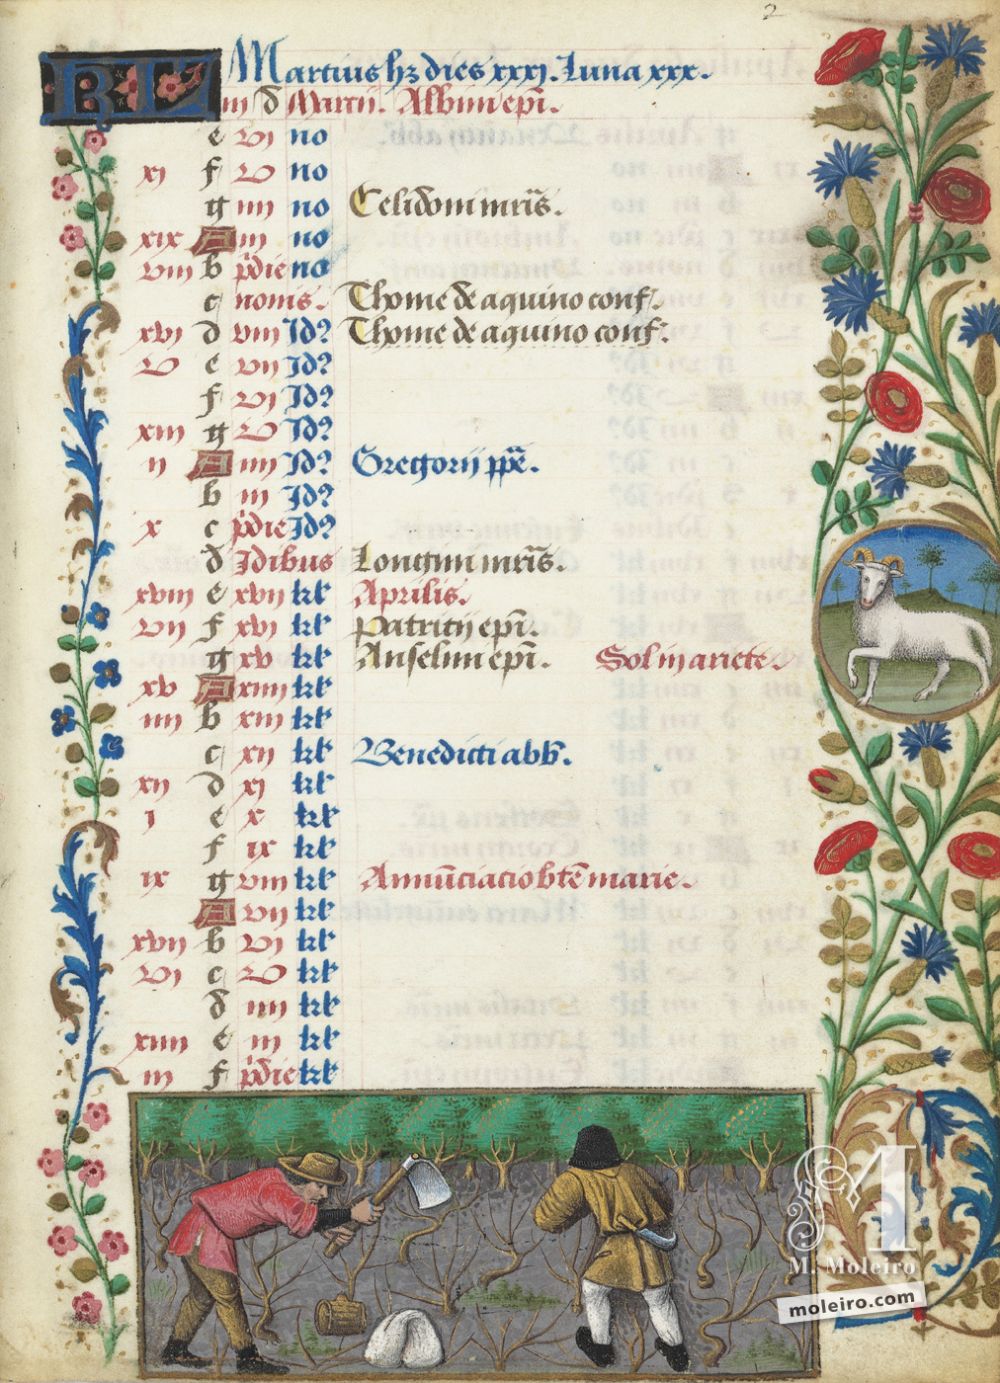 2
KL Martius hz dies xxxj. Luna xxx.
iij d Martij. Albini epi.
e vj no
xj f v no
g iiij no Celidonii mris.
xix A iij no
viij b pdie no
c nonis. Thome de aquino conf.
xvj d viij Id? Thome de aquino conf.
v e vij Id?
f vj Id?
xiij g v Id?
ij A iiij Id? Gregorij ppe.
b iij Id?
x c pdie Id?
d Idibus Longini mris.
xviij e xvij kl Aprilis.
vij f xvj kl Patritij epi.
g xv kl Anselmi epi. Sol in ariete.
xv A xiiij kl
iiij b xiij kl
c xij kl Benedicti abb.
xij d xj kl
j e x kl
f ix kl
ix g viij kl Annunciacio bte marie.
A vij kl
xvij b vj kl
vj c v kl
d iiij kl
xiiij e iij kl
iij f pdie kl
M
M. Moleiro
moleiro.com